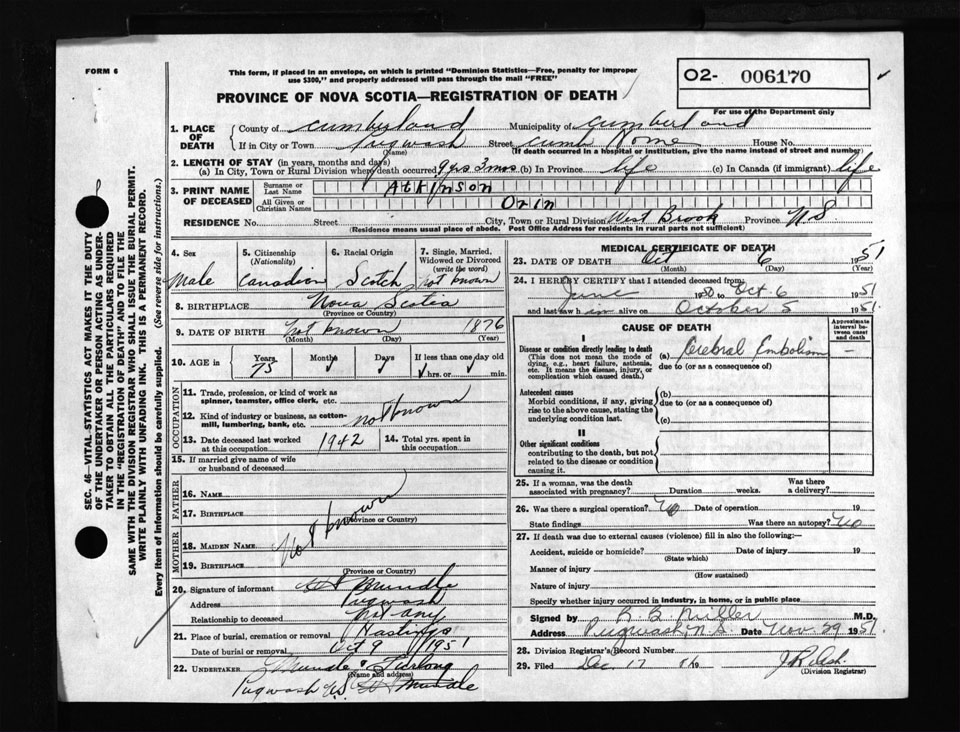 FORM 6
This form, if placed in an envelope, on which is printed "Dominion Statistics—Free, penalty for improper
use $300," and properly addressed will pass through the mail "FREE"
O2- 006170
PROVINCE OF NOVA SCOTIA—REGISTRATION OF DEATH
For use of the Department only
1. PLACE OF DEATH
County of Cumberland Municipality of Cumberland
If in City or Town Pugwash Street Cumb Home House No.
(Name) (If death occurred in a hospital or institution, give the name instead of street and number)
2. LENGTH OF STAY (in years, months and days)
(a) In City, Town or Rural Division where death occurred 9 yrs 3 mos (b) In Province life (c) In Canada (if immigrant) life
3. PRINT NAME OF DECEASED
Surname or Last Name Atkinson
All Given or Christian Names Orin
RESIDENCE No. Street City, Town or Rural Division West Brook Province N.S
(Residence means usual place of abode. Post Office Address for residents in rural parts not sufficient)
4. Sex Male
5. Citizenship (Nationality) Canadian
6. Racial Origin Scotch
7. Single, Married, Widowed or Divorced (write the word) not known
8. BIRTHPLACE Nova Scotia
(Province or Country)
9. DATE OF BIRTH Not known 1876
(Month) (Day) (Year)
10. AGE in Years 75 Months Days If less than one day old
hrs. or min.
OCCUPATION
11. Trade, profession, or kind of work as
spinner, teamster, office clerk, etc.
12. Kind of industry or business, as cotton-
mill, lumbering, bank, etc. not known
13. Date deceased last worked
at this occupation 1942
14. Total yrs. spent in
this occupation
15. If married give name of wife
or husband of deceased
FATHER
16. NAME
17. BIRTHPLACE
(Province or Country)
MOTHER
18. MAIDEN NAME Not known
19. BIRTHPLACE
(Province or Country)
20. Signature of informant Mundle
Address Pugwash
Relationship to deceased not any
21. Place of burial, cremation or removal Hastings
Date of burial or removal Oct 9 1951
22. UNDERTAKER Mundle & Furlong
(Name and address)
Pugwash N.S. Mundle
MEDICAL CERTIFICATE OF DEATH
23. DATE OF DEATH Oct 6 1951
(Month) (Day) (Year)
24. I HEREBY CERTIFY that I attended deceased from
June 1950 to Oct. 6 1951
and last saw him alive on October 5 1951
CAUSE OF DEATH
Approximate interval between onset and death
I
Disease or condition directly leading to death
(This does not mean the mode of
dying, e.g., heart failure, asthenia,
etc. It means the disease, injury, or
complication which caused death.)
(a) Cerebral Embolism —
due to (or as a consequence of)
Antecedent causes
Morbid conditions, if any, giving
rise to the above cause, stating the
underlying condition last.
(b)
due to (or as a consequence of)
(c)
II
Other significant conditions
contributing to the death, but not
related to the disease or condition
causing it.
25. If a woman, was the death
associated with pregnancy? Duration weeks. Was there a delivery?
26. Was there a surgical operation? No Date of operation 19
State findings Was there an autopsy? No
27. If death was due to external causes (violence) fill in also the following:—
Accident, suicide or homicide? Date of injury 19
(State which)
Manner of injury
(How sustained)
Nature of injury
Specify whether injury occurred in industry, in home, or in public place
Signed by R B Miller M.D.
Address Pugwash N.S. Date Nov 29 1951
28. Division Registrar's Record Number
29. Filed Dec 17 19
(Division Registrar)
SEC. 46—VITAL-STATISTICS ACT MAKES IT THE DUTY
OF THE UNDERTAKER OR PERSON ACTING AS UNDER-
TAKER TO OBTAIN ALL THE PARTICULARS REQUIRED
IN THE "REGISTRATION OF DEATH" AND TO FILE THE
SAME WITH THE DIVISION REGISTRAR WHO SHALL ISSUE THE BURIAL PERMIT.
WRITE PLAINLY WITH UNFADING INK. THIS IS A PERMANENT RECORD.
Every item of Information should be carefully supplied. (See reverse side for instructions.)